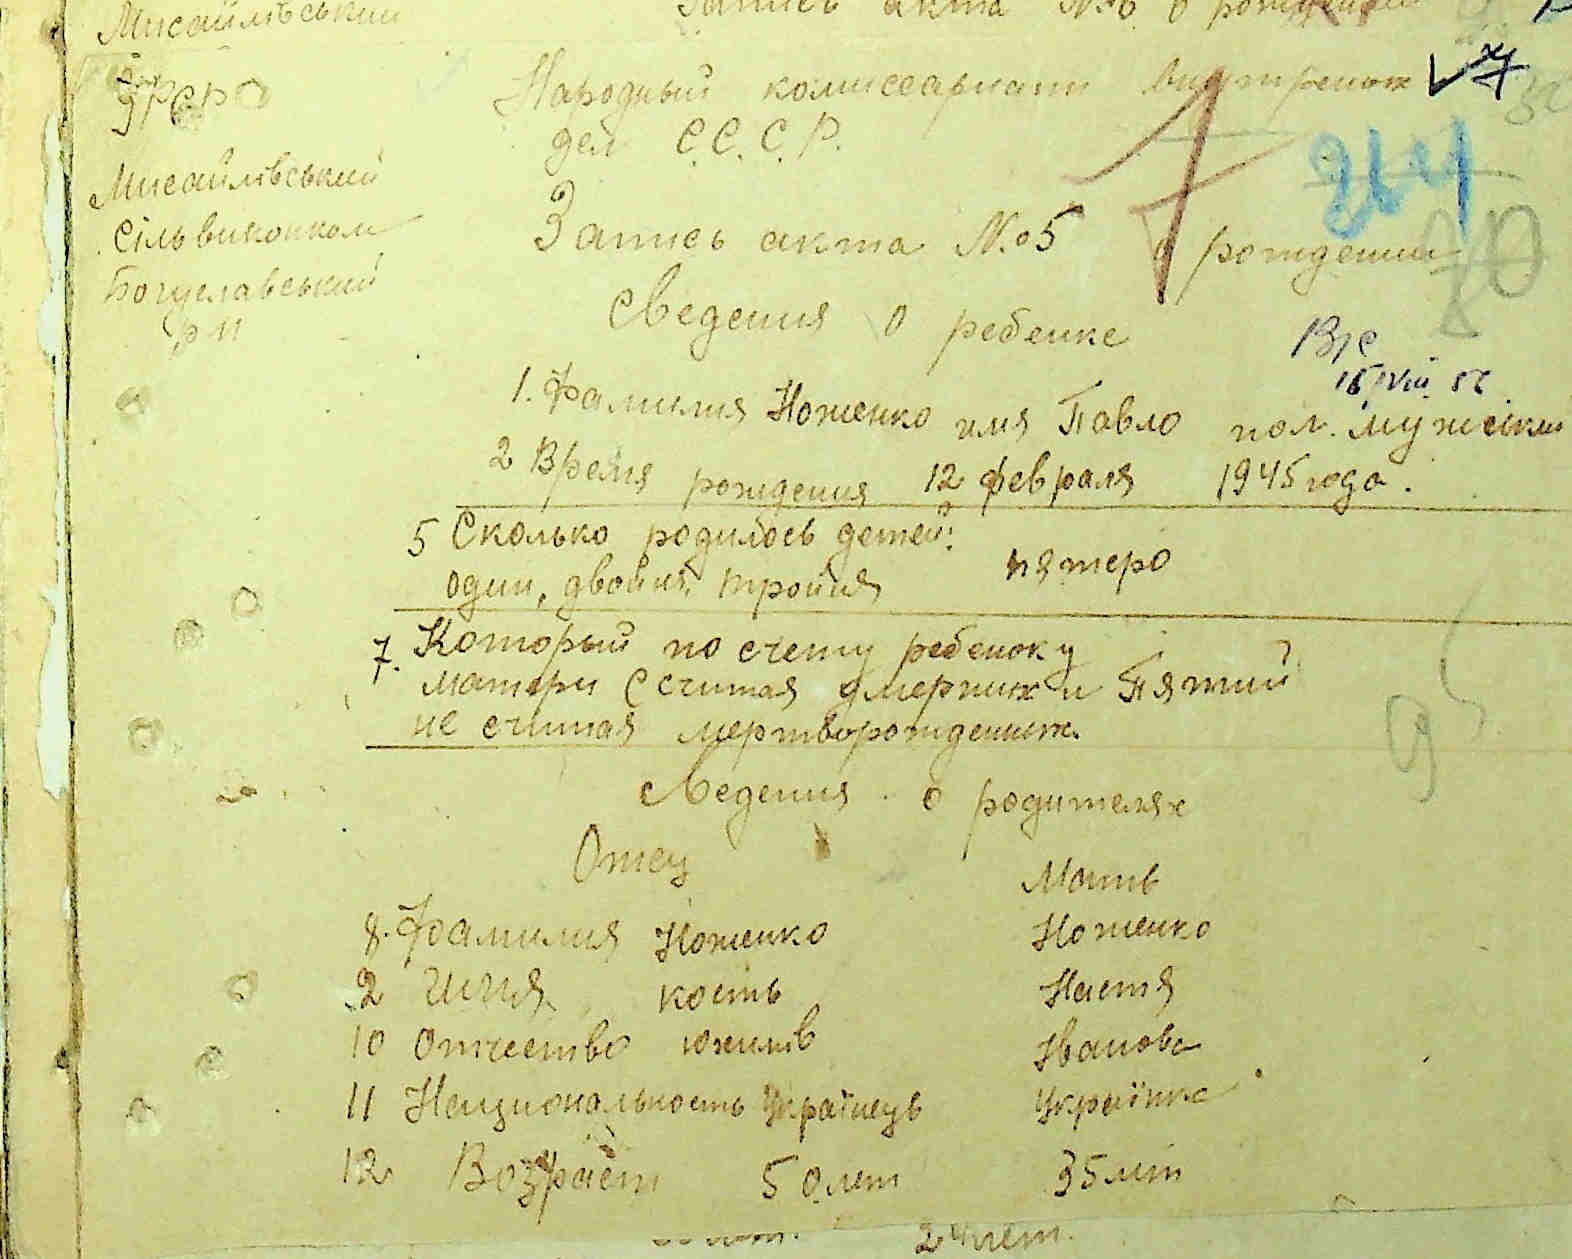 Мисайлівський
Запись акта №6 о рождении
УРСР
Мисайлівський
сільвиконком
Богуславський
р-н
Народный комиссариат внутренних
дел С.С.С.Р.
7
264
20
Запись акта №5 о рождении
Сведения о ребенке
1. Фамилия Ноженко имя Павло пол. мужским
2 Время рождения 12 февраля 1945 года.
5 Сколько родилось детей:
один, двойня, тройня пятеро
7. Который по счету ребенок у
матери (считая умерших и Пятий
не считая мертворожденных.
Сведения о родителях
Отец Мать
8. Фамилия Ноженко Ноженко
9 Имя кость Настя
10 Отчество юхимів Іванова
11 Национальность Українець Українка
12 Возраст 50 лет 35 лет
24 лет.